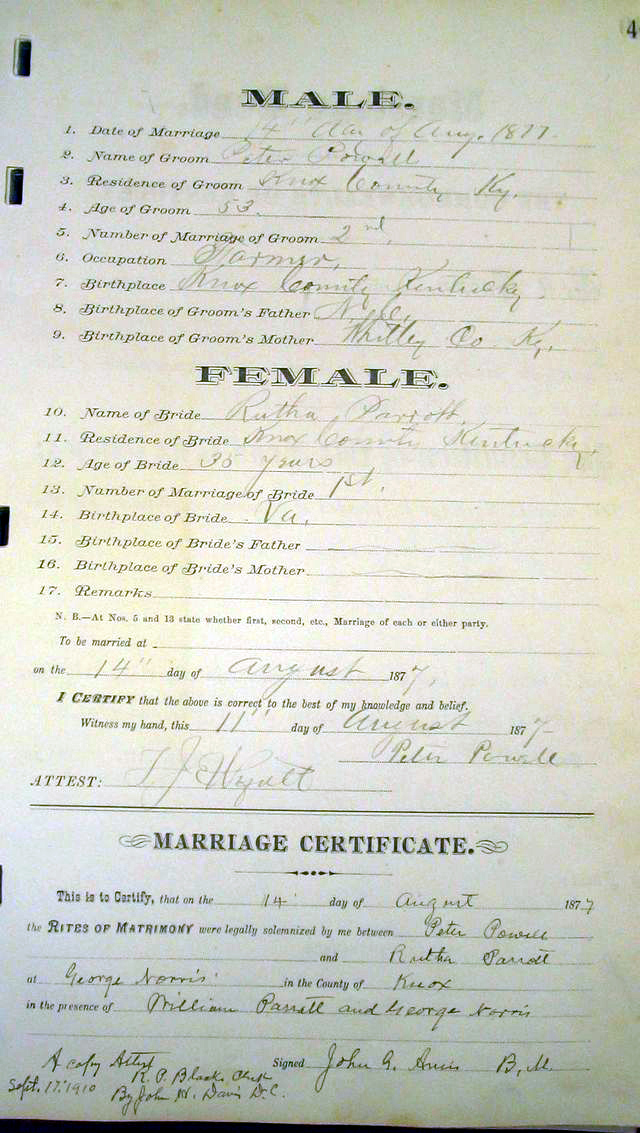 4
MALE.
1. Date of Marriage 14" day of Aug. 1877.
2. Name of Groom Peter Powell
3. Residence of Groom Knox County Ky.
4. Age of Groom 53.
5. Number of Marriage of Groom 2nd,
6. Occupation Farmer,
7. Birthplace Knox County Kentucky.
8. Birthplace of Groom's Father N.C.
9. Birthplace of Groom's Mother Whitley Co. Ky.
FEMALE.
10. Name of Bride Rutha Parrott,
11. Residence of Bride Knox County Kentucky,
12. Age of Bride 35 years
13. Number of Marriage of Bride 1st.
14. Birthplace of Bride Va.
15. Birthplace of Bride's Father
16. Birthplace of Bride's Mother
17. Remarks
N. B.—At Nos. 5 and 13 state whether first, second, etc., Marriage of each or either party.
To be married at
on the 14" day of August 1877,
I CERTIFY that the above is correct to the best of my knowledge and belief.
Witness my hand, this 11" day of August 1877
Peter Powell
ATTEST: T J Wyatt
MARRIAGE CERTIFICATE.
This is to Certify, that on the 14" day of August 1877
the RITES OF MATRIMONY were legally solemnized by me between Peter Powell
and Rutha Parrott
at George Norris' in the County of Knox
in the presence of William Parrott and George Norris
Signed John G. B. M.
A copy Attest
R. P. Black, Clerk
Sept. 17, 1910
By John W. Davis D.C.